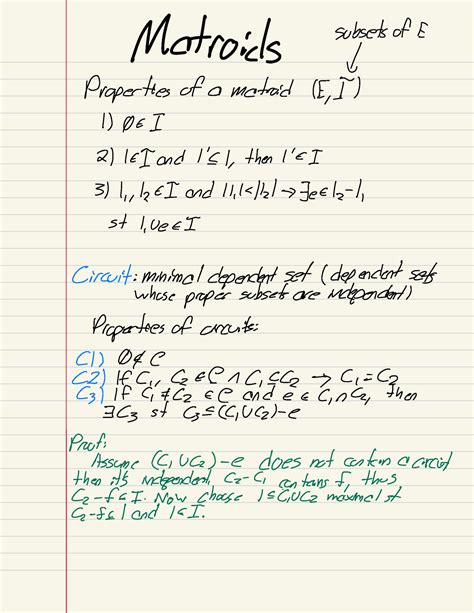 Matroids
subsets of E
Properties of a matroid (E, I)
1) ∅ ∈ I
2) I ∈ I and I' ⊆ I, then I' ∈ I
3) I₁, I₂ ∈ I and |I₁| < |I₂| → ∃ e ∈ I₂ - I₁
st I₁ ∪ e ∈ I
Circuit: minimal dependent set (dependent sets
whose proper subsets are independent)
Properties of circuits:
C1) ∅ ∉ C
C2) If C₁, C₂ ∈ C ∧ C₁ ⊆ C₂ → C₁ = C₂
C3) If C₁ ≠ C₂ ∈ C and e ∈ C₁ ∩ C₂, then
∃ C₃ st C₃ ⊆ (C₁ ∪ C₂) - e
Prof:
Assume (C₁ ∪ C₂) - e does not contain a circuit
then it's independent, C₂ - C₁ contains f, thus
C₂ - f ∈ I. Now choose I ⊆ C₁ ∪ C₂ maximal st
C₂ - f ⊆ I and I ∈ I.